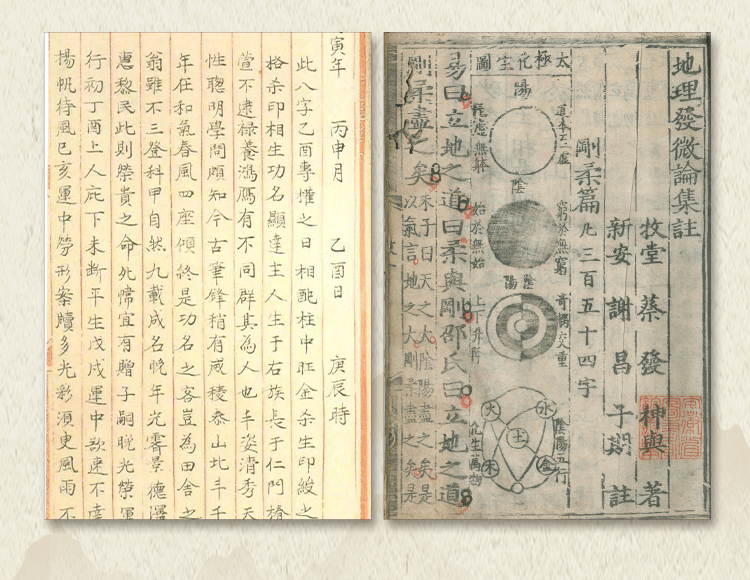 寅年 丙申月 乙酉日 庚辰時
此八字乙酉專權之日相配柱中旺金杀生印綬之
格杀印相生功名顯達主人生于右族長于仁門椿
萱不逮祿養鴻鴈有不同群其為人也丰姿清秀天
性聰明學問頗知今古筆鋒稍有威稜泰山北斗千
年在和氣春風四座傾終是功名之客豈為田舍之
翁雖不三登科甲自然九載成名晚年光霽景德澤
惠黎民此則榮貴之命死帰宜有贈子嗣晚光榮運
行初丁酉上人庇下未斷平生戊戌運中欲速不達
揚帆待風己亥運中勞形案牘多光彩須臾風雨不
地理發微論集註
牧堂蔡發神與著
新安謝昌子期註
剛柔篇凡三百五十四字
太極化生圖
陽
陰
陰陽
始於無始
上下升降
陰陽五行
化生萬物
水
火
土
木
金
易曰立地之道曰柔與剛邵氏曰立地之道
剛柔盡之矣
朱子曰天之大陰陽盡之矣是
以氣言地之大剛柔盡之矣是